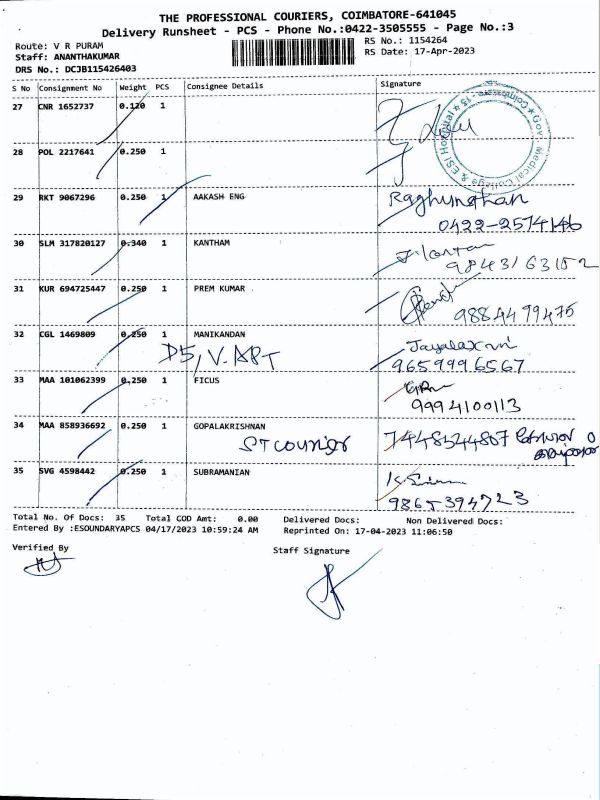 THE PROFESSIONAL COURIERS, COIMBATORE-641045
Delivery Runsheet - PCS - Phone No.:0422-3505555 - Page No.:3
Route: V R PURAM
RS No.: 1154264
Staff: ANANTHAKUMAR
RS Date: 17-Apr-2023
DRS No.: DCJB115426403
S No Consignment No Weight PCS Consignee Details Signature
27 CNR 1652737 0.120 1
Gov. Medical College & ESI Hospital ★ Coimbatore - 15 ★
28 POL 2217641 0.250 1
29 RKT 9067296 0.250 1 AAKASH ENG Raghunathan
0422-2574146
30 SLM 317820127 0.340 1 KANTHAM
9843163152
31 KUR 694725447 0.250 1 PREM KUMAR
9884479475
32 CGL 1469809 0.250 1 MANIKANDAN Jayalaxmi
D5, V.APT 9659996567
33 MAA 101062399 0.250 1 FICUS
9994100113
34 MAA 858936692 0.250 1 GOPALAKRISHNAN
ST courier 7448544807
35 SVG 4598442 0.250 1 SUBRAMANIAN
9865394723
Total No. Of Docs: 35 Total COD Amt: 0.00 Delivered Docs: Non Delivered Docs:
Entered By :ESOUNDARYAPCS 04/17/2023 10:59:24 AM Reprinted On: 17-04-2023 11:06:50
Verified By Staff Signature